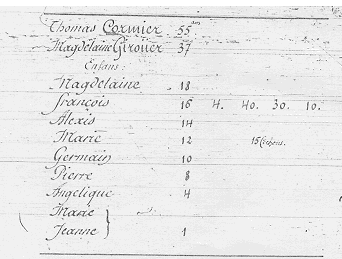 Thomas Cormier 55 ans
Magdelaine Girouer 37
Enfans:
Magdelaine 18
françois 16 4. 40. 30. 10.
Alexis 14
Marie 12 15 Cochons.
Germain 10
Pierre 8
Angelique 4
Marie }
Jeanne } 1